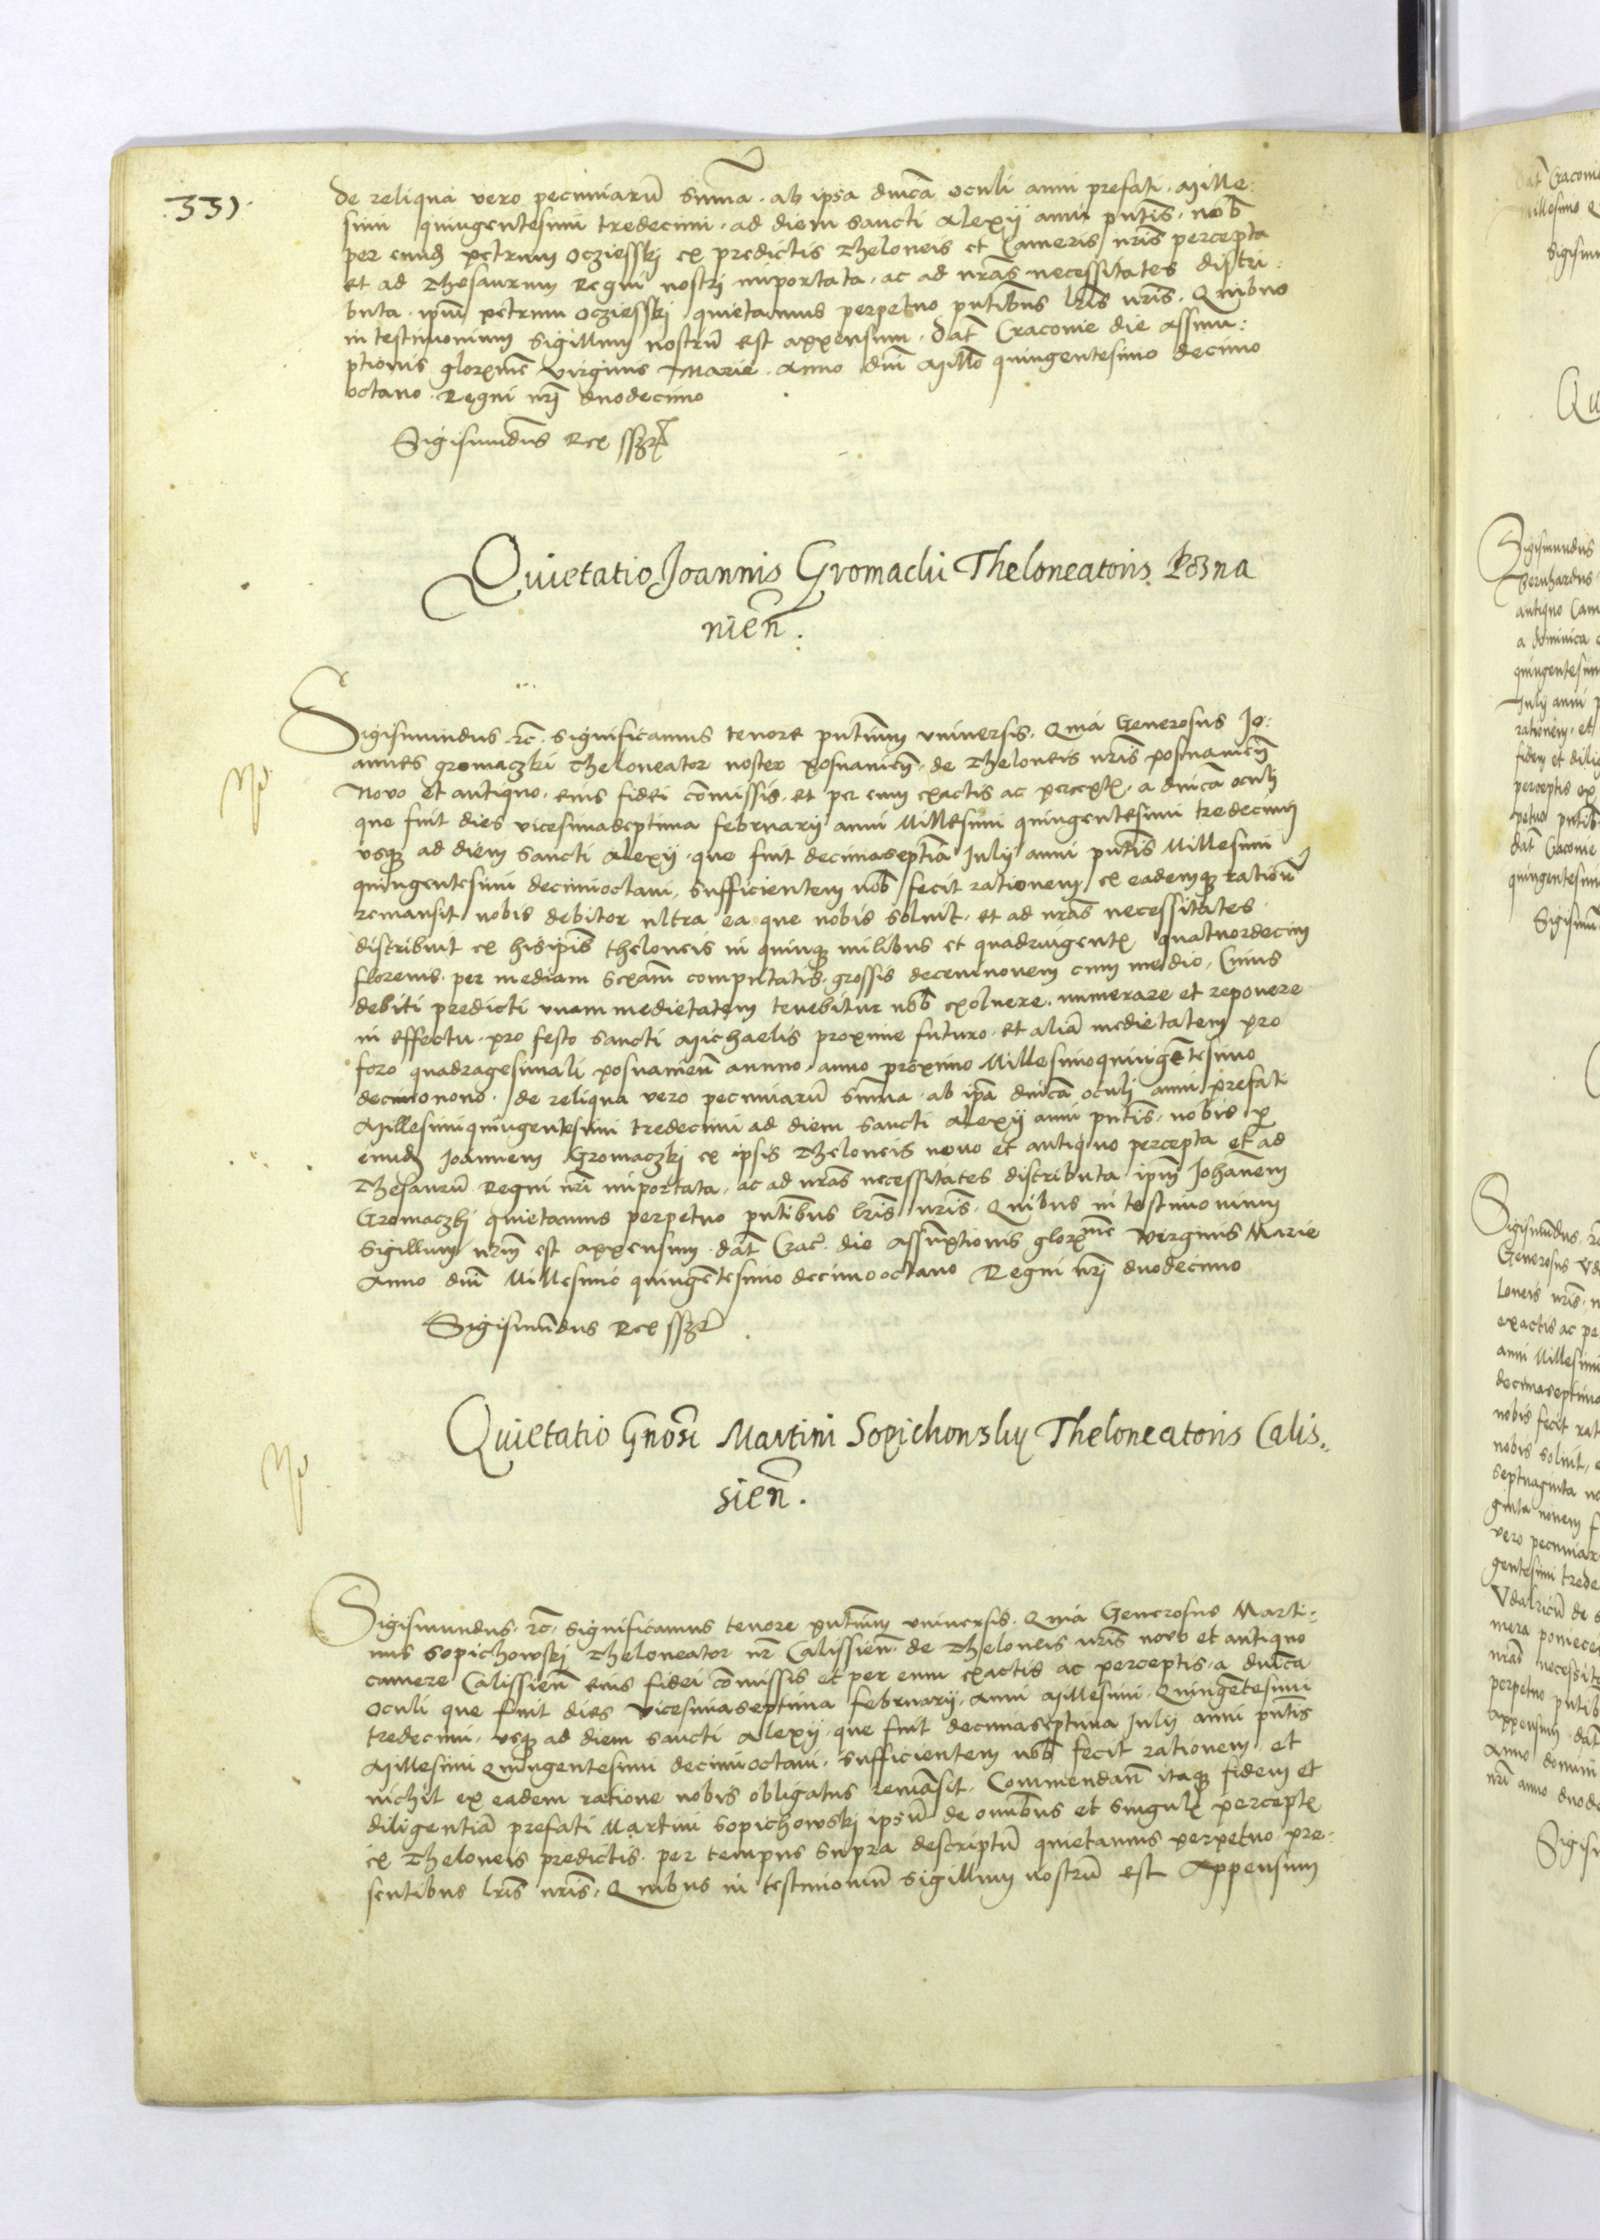 331
de reliqua vero pecuniarũ sũma. ab ipsa dnĩca oculi anni prefati. Mille:
simi quingentesimi tredecimi. ad diem sancti Alexij anni pñtis. nob̃
per eund Petrum Oczesskj ex predictis Theloneis et Cameris nrĩs percepta
et ad Thesaurum Regni nostrj importata. ac ad nrãs necessitates distri:
buta. ipm̃ Petrum Oczesskj quietamus perpetuo pñtibus lrĩs nrĩs. Quibus
in testimonium sigillum nostrũ est appensum. Dat̃ Cracovie die assum:
ptionis glorx̃me virginis Marie. Anno dnĩ Millõ quingentesimo decimo
octavo. Regni nrĩ duodecimo
Sigismundus Rex sszt
Quietatio Joannis Gromaclii Theloneatoris Pozna
nień.
Sigismundus. rc̃. significamus tenore pñtium universis. Quia Generosus Jo:
annes gromaczki Theloneator noster Posnanień. de Theloneis nrĩs posnanień
Novo et antiquo. eius fidei cõmissis. et per eum exactis ac percept. a dnĩca oculi
que fuit dies vicesimaseptima februarij anni Millesimi quingentesimi tredecimi
usq ad diem sancti Alexij. que fuit decimaseptĩa Julij anni pñtis Millesimi
quingentesimi decimioctavi, sufficientem nob̃ fecit rationem ex eademq ratiõñ
remansit nobis debitor ultra ea que nobis solvit. et ad nrãs necessitates
distribuit ex his ipĩs theloneis in quinq milibus et quadringent quatuordecim
florenis. per mediam sexam̃ computatis. grossis decemnovem cum medio. Cuius
debiti predicti unam medietatem tenebitur nob̃ exolvere. numerare et reponere
in effectu. pro festo sancti Michaelis proxime futuro. et aliã medietatem pro
foro quadragesimali posnanień annno. anno proximo Millesimoquingẽtesimo
decimonono. de reliqua vero pecuniarũ sũma. ab ipã dnĩcã oculj anni prefati
Millesimiquingentesimi tredecimi ad diem sancti Alexij anni pñtis. nobis p
eund Joannem Gromaczkj ex ipsis Theloneis novo et antiquo percepta et ad
Thesaurũ Regni nrĩ importata. ac ad nrãs necessitates distributa ipm̃ Johañem
Gromaczkj quietamus perpetuo pñtibus lrĩs nrĩs. Quibus in testimonium
sigillum nrm̃ est appensum. dat̃ Crac̃. die Assũptionis glorx̃me Virginis Marie
Anno dnĩ Millesimo quingẽtesimo decimooctavo Regni nrĩ duodecimo
Sigismũdus Rex sszt
Quietatio Gnosi Martini Sopichonskij Theloneatoris Calis,,
sień.
Sigismundus. rc̃. significamus tenore pñtium universis. Quia Generosus Marti:
nus Sopichowskj Theloneator nr̃ Calissień. de Theloneis nrĩs novo et antiquo
camere Calissień eius fidei cõmissis et per eum exactis ac perceptis. a dnĩca
Oculi que fuit dies vicesimaseptima februarij. anni Millesimi. Quingẽtesimi
tredecimi. usq ad diem sancti Alexij. que fuit decimaseptima Julij anni pñtis
Millesimi Quingentesimi decimioctavi. sufficientem nob̃ fecit rationem. et
nichil ex eadem ratione nobis obligatus remãsit. Commendañ itaq fidem et
diligentiã prefati Martini Sopichowskj ipsũ de omĩbus et singul percept
ex Theloneis predictis. per tempus supra descriptũ quietamus perpetuo pre:
sentibus lrĩs nrĩs. Quibus in testimoniũ sigillum nostrũ est Appensum